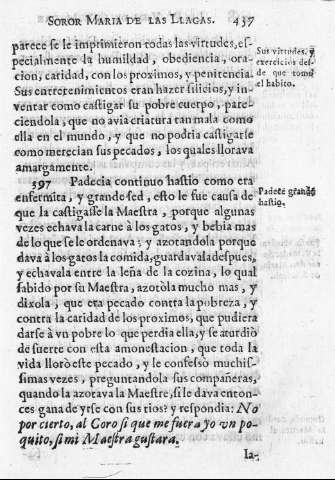 SOROR MARIA DE LAS LLAGAS. 437
parece se le imprimieron todas las virtudes, es-
pecialmente la humildad, obediencia, ora-
cion, caridad, con los proximos, y penitencia.
Sus entretenimientos eran hazer silicios, y in-
ventar como castigar su pobre cuerpo, pare-
ciendola, que no avia criatura tan mala como
ella en el mundo, y que no podria castigarse
como merecian sus pecados, los quales llorava
amargamente.
Sus virtudes, y
exercicios des-
de que tomò
el habito.
597 Padecia continuo hastio como era
enfermita, y grande sed, esto le fue causa de
que la castigasse la Maestra, porque algunas
vezes echava la carne à los gatos, y bebia mas
de lo que se le ordenava; y azotandola porque
dava à los gatos la comida, guardavala despues,
y echavala entre la leña de la cozina, lo qual
sabido por su Maestra, azotòla mucho mas, y
dixola, que era pecado contra la pobreza, y
contra la caridad de los proximos, que pudiera
darse à vn pobre lo que perdia ella, y se aturdiò
de suerte con esta amonestacion, que toda la
vida llorò este pecado, y le confessò muchis-
simas vezes, preguntandola sus compañeras,
quando la azotava la Maestre, si le dava enton-
ces gana de yrse con sus tios? y respondia: No
por cierto, al Coro si que me fuera yo vn po-
quito, si mi Maestra gustara.
Padece grande
hastio.
Ia-